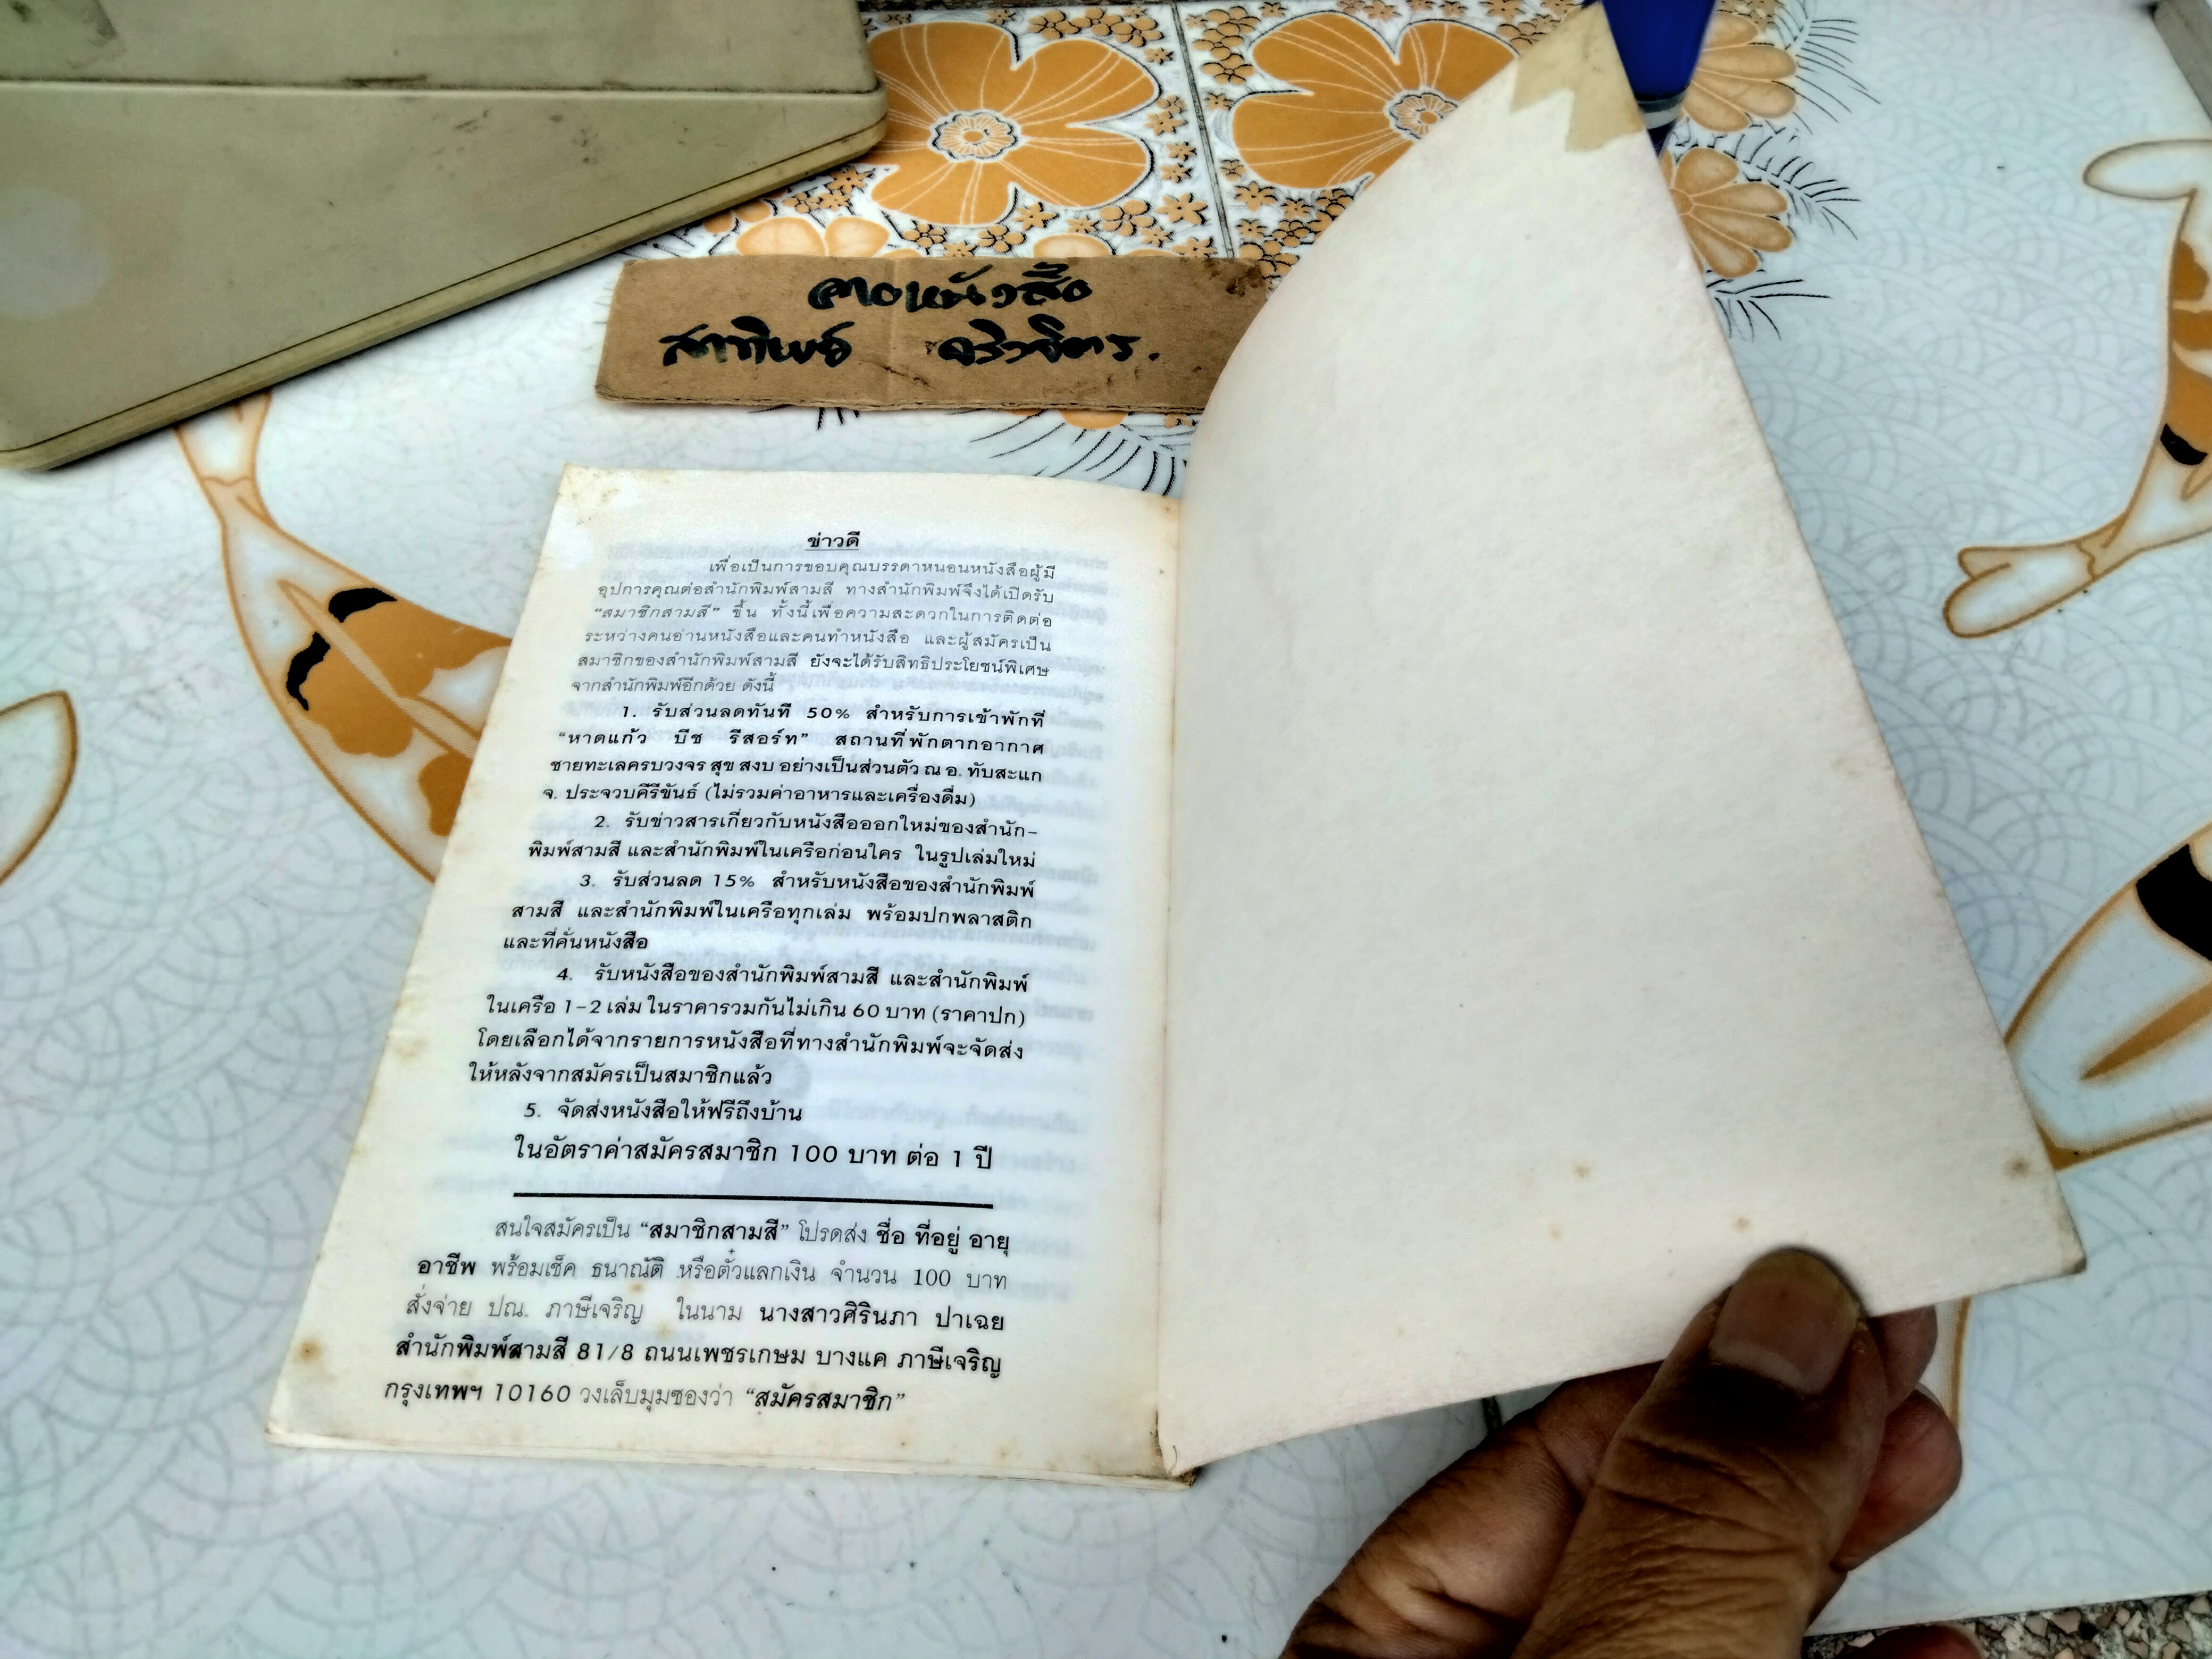 ข่าวดี
เพื่อเป็นการขอบคุณบรรดาหนอนหนังสือผู้มี
อุปการคุณต่อสำนักพิมพ์สามสี ทางสำนักพิมพ์จึงได้เปิดรับ
“สมาชิกสามสี” ขึ้น ทั้งนี้เพื่อความสะดวกในการติดต่อ
ระหว่างคนอ่านหนังสือและคนทำหนังสือ และผู้สมัครเป็น
สมาชิกของสำนักพิมพ์สามสี ยังจะได้รับสิทธิประโยชน์พิเศษ
จากสำนักพิมพ์อีกด้วย ดังนี้
1. รับส่วนลดทันที 50% สำหรับการเข้าพักที่
“หาดแก้ว บีช รีสอร์ท” สถานที่พักตากอากาศ
ชายทะเลครบวงจร สุข สงบ อย่างเป็นส่วนตัว ณ อ. ทับสะแก
จ. ประจวบคีรีขันธ์ (ไม่รวมค่าอาหารและเครื่องดื่ม)
2. รับข่าวสารเกี่ยวกับหนังสือออกใหม่ของสำนัก-
พิมพ์สามสี และสำนักพิมพ์ในเครือก่อนใคร ในรูปเล่มใหม่
3. รับส่วนลด 15% สำหรับหนังสือของสำนักพิมพ์
สามสี และสำนักพิมพ์ในเครือทุกเล่ม พร้อมปกพลาสติก
และที่คั่นหนังสือ
4. รับหนังสือของสำนักพิมพ์สามสี และสำนักพิมพ์
ในเครือ 1-2 เล่ม ในราคารวมกันไม่เกิน 60 บาท (ราคาปก)
โดยเลือกได้จากรายการหนังสือที่ทางสำนักพิมพ์จะจัดส่ง
ให้หลังจากสมัครเป็นสมาชิกแล้ว
5. จัดส่งหนังสือให้ฟรีถึงบ้าน
ในอัตราค่าสมัครสมาชิก 100 บาท ต่อ 1 ปี
สนใจสมัครเป็น “สมาชิกสามสี” โปรดส่ง ชื่อ ที่อยู่ อายุ
อาชีพ พร้อมเช็ค ธนาณัติ หรือตั๋วแลกเงิน จำนวน 100 บาท
สั่งจ่าย ปณ. ภาษีเจริญ ในนาม นางสาวศิรินภา ปาเฉย
สำนักพิมพ์สามสี 81/8 ถนนเพชรเกษม บางแค ภาษีเจริญ
กรุงเทพฯ 10160 วงเล็บมุมซองว่า “สมัครสมาชิก”